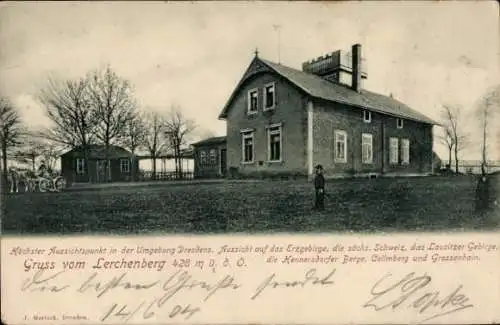 Höchster Aussichtspunkt in der Umgebung Dresdens. Aussicht auf das Erzgebirge, die sächs. Schweiz, das Lausitzer Gebirge,
Gruss vom Lerchenberg 428 m ü. d. O. die Hennersdorfer Berge, Collmberg und Grossenhain.
Die besten Grüße sendet
14/6 04
J. Mortsch, Dresden.